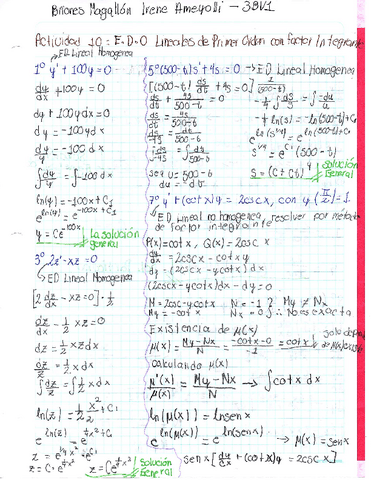 Briones Magallón Irene Ameyalli - 3BV1
Actividad 10: E.D.O Lineales de Primer Orden con factor Integrante
1° y' + 100y = 0
→ ED Lineal Homogenea
dy/dx + 100y = 0
dy + 100y dx = 0
dy = -100y dx
dy/y = -100 dx
∫dy/y = ∫-100 dx
ln(y) = -100x + C₁
e^ln(y) = e^-100x + C₁
y = Ce^-100x
La solución general
3° 2z' - xz = 0
→ ED Lineal Homogenea
[2 dz/dx - xz = 0] · 1/2
dz/dx - 1/2 xz = 0
dz = 1/2 xz dx
dz/z = 1/2 x dx
∫dz/z = ∫1/2 x dx
ln(z) = 1/2 x²/2 + C₁
e^ln(z) = e^1/4 x² + C₁
z = e^1/4 x² · e^C₁
z = C · e^1/4 x²
z = Ce^1/4 x²
Solución General
5° (500-t)s' + 4s = 0 → ED Lineal Homogenea
[(500-t) ds/dt + 4s = 0]
ds/dt + 4s/500-t = 0
ds/dt = 4s/500-t
sea u = 500-t
du = dt
-1/4 ∫ds/s = ∫-du/u
-1/4 ln(s) = -ln(500-t) + C₁
e^ln(s^1/4) = e^ln(500-t) + C₁
s^1/4 = e^C₁ (500-t)
s = (C + Ct)⁴
Solución General
7° y' + (cotx)y = 2cscx, con y(π/2) = 1.
→ ED Lineal no homogenea, resolver por metodo de factor integrante
P(x) = cotx, Q(x) = 2cscx
dy/dx = 2cscx - cotxy
dy = (2cscx - ycotx)dx
(2cscx - ycotx)dx - dy = 0
M = 2cscx - ycotx N = -1 ? My ≠ Nx
My = -cotx Nx = 0 ∴ No es exacta
Existencia de μ(x)
μ(x) = My - Nx/N = -cotx - 0/-1 = cotx
Calculando μ(x)
μ'(x)/μ(x) = My - Nx/N → ∫cotx dx
ln(μ(x)) = lnsenx
e^ln(μ(x)) = e^ln(senx) → μ(x) = senx
senx [dy/dx + (cotx)y = 2cscx]